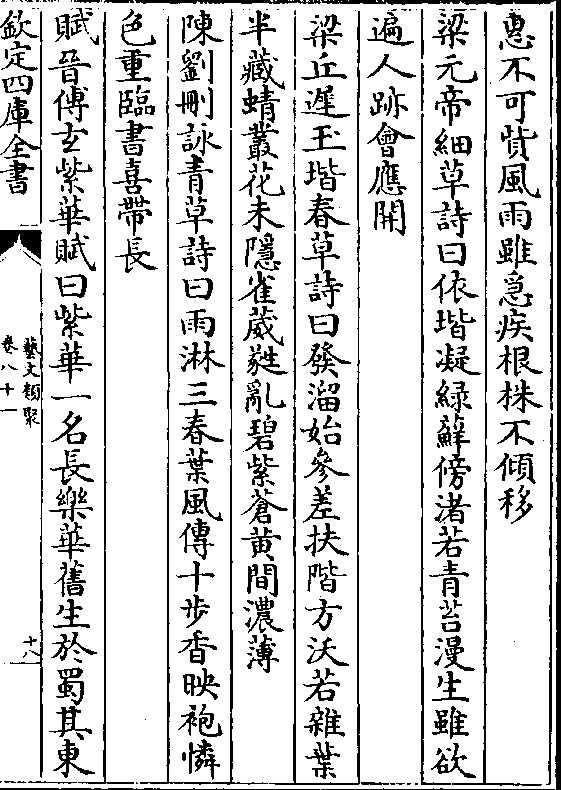 惠不可貲風雨雖急疾根株不傾移
梁元帝細草詩曰依堦凝緑蘚傍渚若青苔漫生雖欲
遍人跡會應開
梁丘遲玉堦春草詩曰發溜始參差扶階方沃若雜葉
半藏蜻叢花未隱雀葳蕤亂碧紫蒼黄間濃薄
陳劉刪詠青草詩曰雨淋三春葉風傳十步香映袍憐
色重臨書喜帶長
賦晉傅玄紫華賦曰紫華一名長樂華舊生於蜀其東
欽定四庫全書
藝文類聚
卷八十一
十八